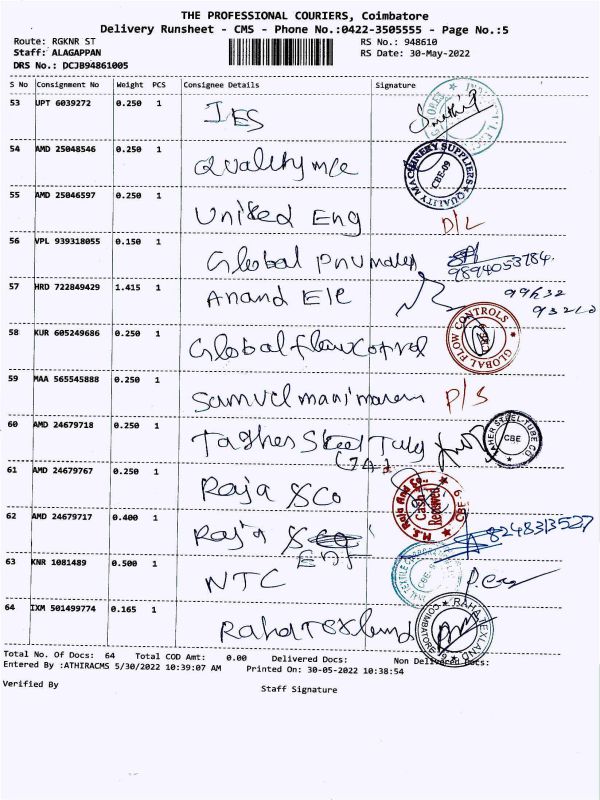 THE PROFESSIONAL COURIERS, Coimbatore
Delivery Runsheet - CMS - Phone No.:0422-3505555 - Page No.:5
Route: RGKNR ST
RS No.: 948610
Staff: ALAGAPPAN
RS Date: 30-May-2022
DRS No.: DCJB94861005
S No Consignment No Weight PCS Consignee Details Signature
53 UPT 6039272 0.250 1 IES
54 AMD 25048546 0.250 1 Quality m/c QUALITY MACHINERY SUPPLIERS CBE-09
55 AMD 25046597 0.250 1 United Eng D/L
56 VPL 939318055 0.150 1 Global 9894053784.
57 HRD 722849429 1.415 1 Anand Ele
58 KUR 605249686 0.250 1 Global flow control GLOBAL FLOW CONTROLS
59 MAA 565545888 0.250 1 Samuel manimaran P/S
60 AMD 24679718 0.250 1 Steel CBE
61 AMD 24679767 0.250 1 Raja & Co M.S. Raja And Co. Cash Received
62 AMD 24679717 0.400 1 Raja 8248313527
63 KNR 1081489 0.500 1 NTC
64 IXM 501499774 0.165 1 Raha Texlend RAHA TEXLAND COIMBATORE
Total No. Of Docs: 64 Total COD Amt: 0.00 Delivered Docs: Non Delivered Docs:
Entered By :ATHIRACMS 5/30/2022 10:39:07 AM Printed On: 30-05-2022 10:38:54
Verified By
Staff Signature